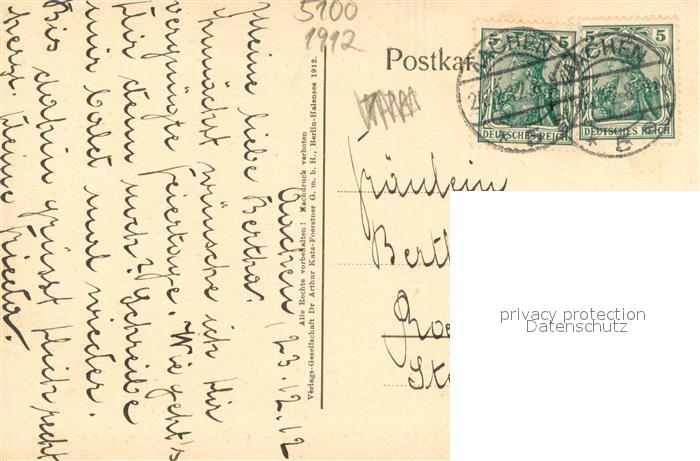 5100
1912
Postkar
5 5
AACHEN
DEUTSCHES REICH
5 5
AACHEN
DEUTSCHES REICH
Aachen, 23.12.12
Meine liebe Bertha.
Zunächst wünsche ich Dir
vergnügte Feiertage. Wie geht's
Dir denn noch? Schreibe
mir bald mal wieder.
Bis dahin grüsst Dich recht
herzl. Deine Frieda.
Alle Rechte vorbehalten! Nachdruck verboten
Verlags-Gesellschaft Dr Arthur Katz-Foerstner G. m. b. H., Berlin-Halensee 1912.
Fräulein
Berth
privacy protection
Datenschutz